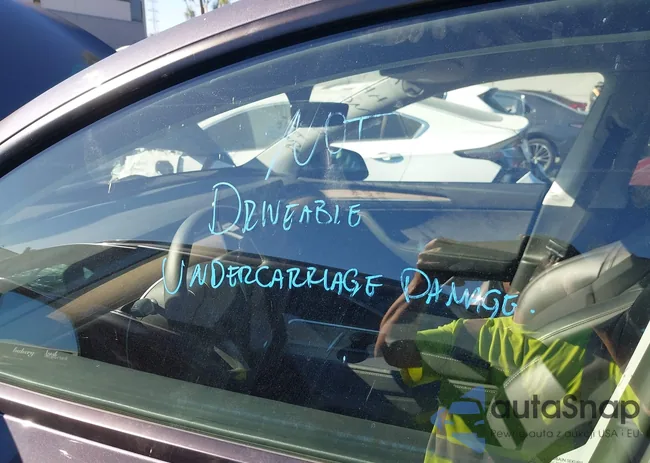 NOT
DRIVEABLE
UNDERCARRIAGE DAMAGE.
autaSnap
Pewne auta z aukcji USA i EU